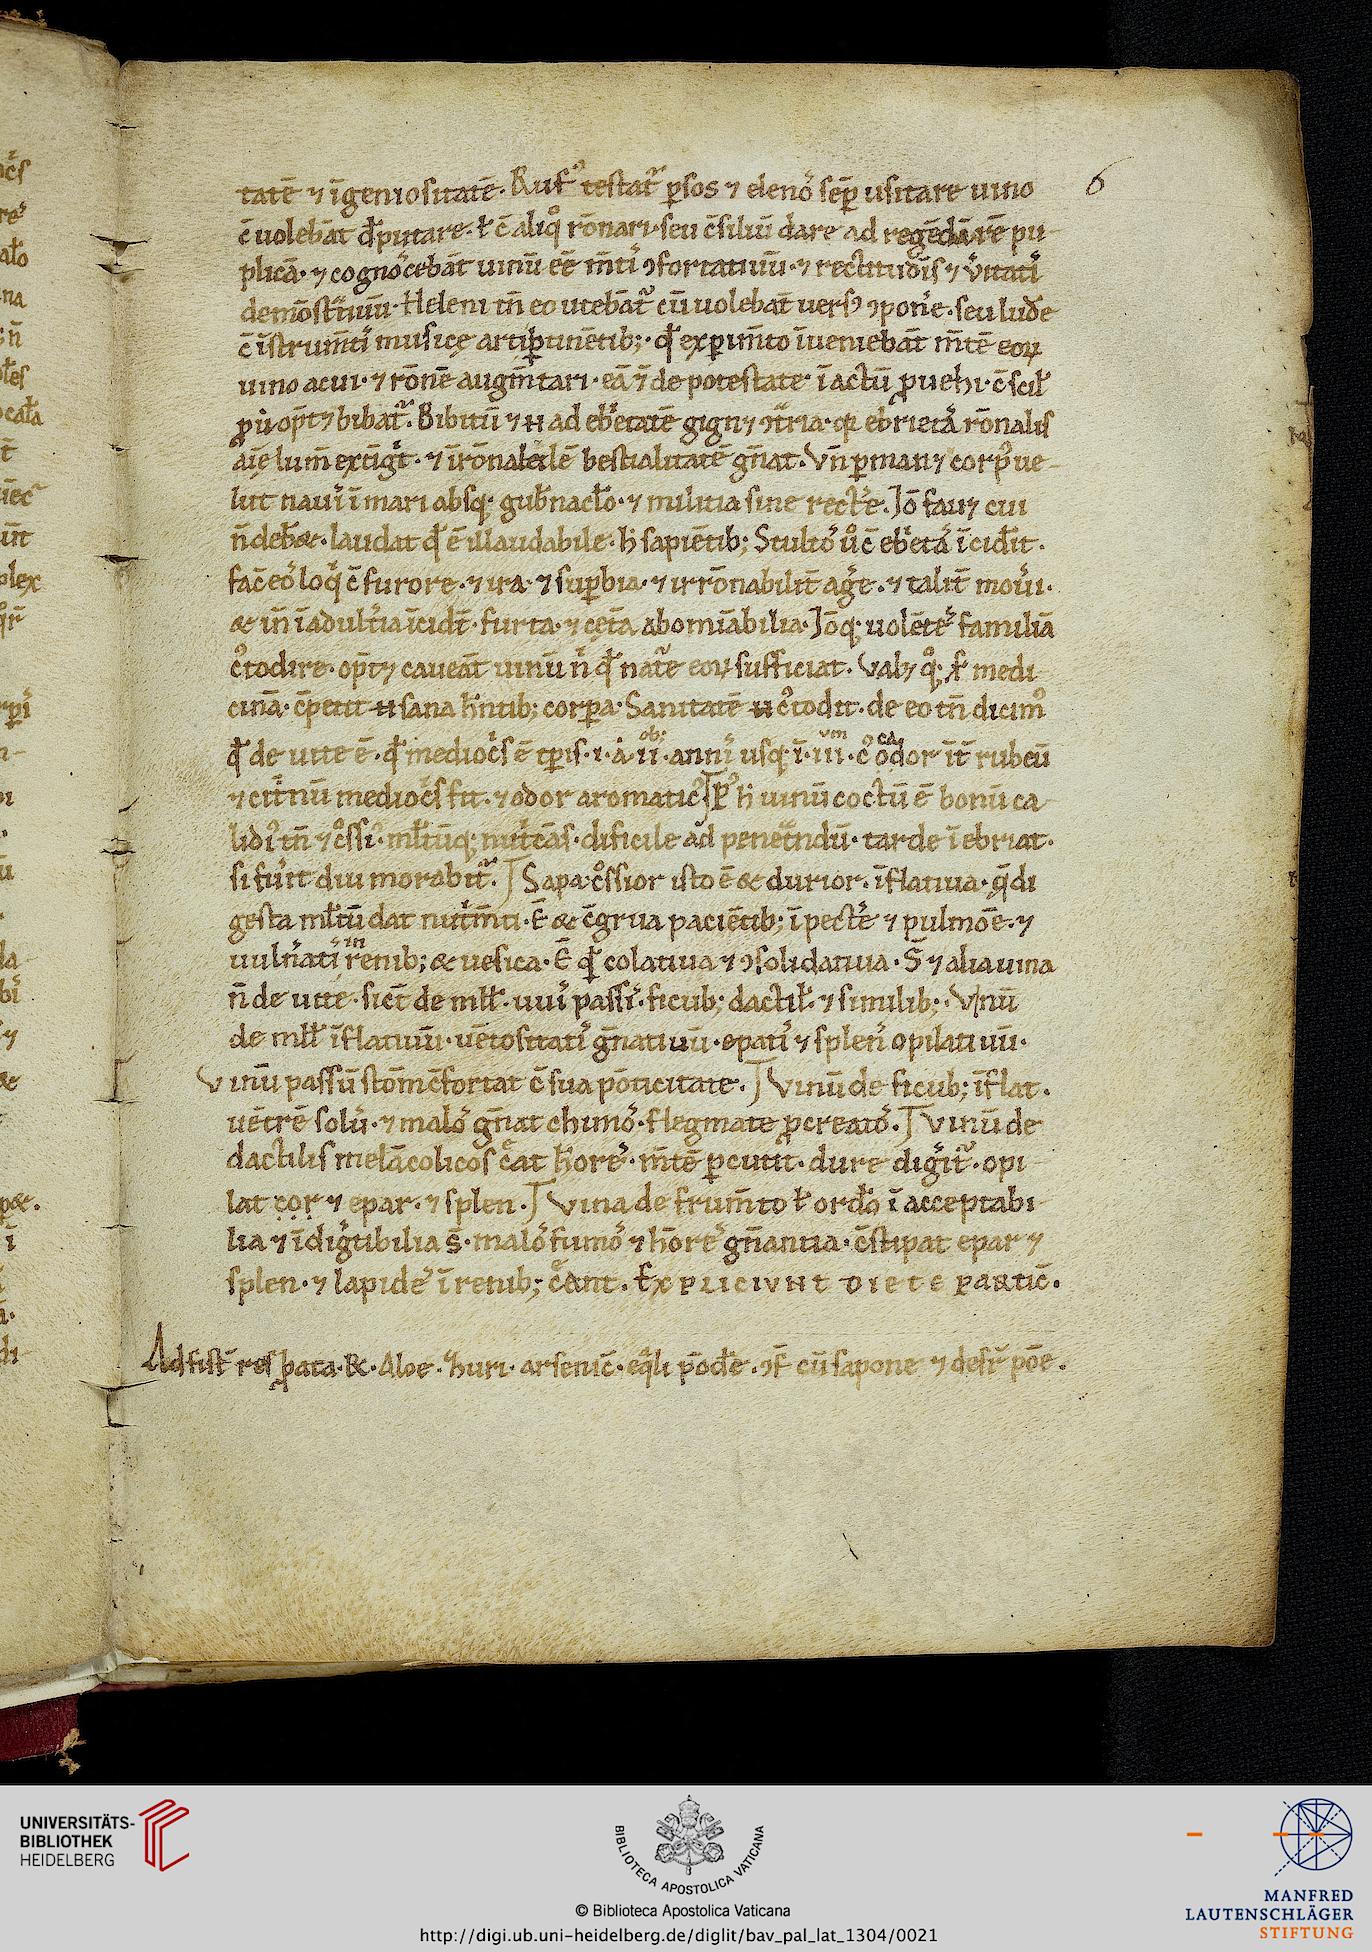 6
tatē ⁊ īgeniositatē. Ruf᷒ testat᷑ ꝑsos ⁊ eleno᷒ sēꝑ usitare uino
c̄ uolebāt đputare. ł c̄ aliq̊ rōnari. seu c̄siliū dare ad regēdā rē pu
plicā. ⁊ cogno᷒cebāt uinū eē m̄ti᷒ ꝯfortatiuū. ⁊ rectitudīs ⁊ ũitati᷒
demōst̃tiuū. Heleni tn̄ eo utebāt᷑ cū uolebāt uersꝰ ꝯpone᷒. seu lude᷒
c̄ īstrum̄ti᷒ musicę arti ꝑtinētib; qđ exꝑim̄to īueniebāt m̄tē eoꝝ
uino acui. ⁊ rōnē augm̄tari. eā ⁊ de potestate ī actū ꝓuehi.
Bibitū ⁊ ad ebetatē gign⁊ ꝯt̃ria. ebrietā rōnalis
aīę lum̄ extīg᷒t. ⁊ irōnale bestialitatē gn̄at. Vn̄ ꝑman⁊ corpꝰ ue
lut naui᷒ ī mari absq; gub̄nacło. ⁊ militia sine recto᷒e. Jō fau⁊ cui
n̄ debet. laudat qđ ē illaudabile. h̄ sapiētib; Stulto᷒ ů c̄ ebetā īcidit.
fac̄ eo᷒ loq᷒ c̄ furore. ⁊ ira. ⁊ suꝑbia. ⁊ irrōnabilit̄ age᷒. ⁊ talit̄ moũi.
& in̄ ī adult̓ia īcidt̄. furta. ⁊ cęt̃a abomīabilia. Jōq; uolēte᷒ familiā
c᷒todire. opt̄⁊ caueāt uinū n̄ qđ nat̃e eoꝝ sufficiat. Val⁊ q̊; medi
cinā. c̄petit sana hn̄tib; corꝑa. Sanitatē c᷒todit. de eo tn̄ dicim᷒
qđ de uite ē. qđ medioc᷒s ē tꝑis. i. a. ii. anni᷒ usq; ī. iii. odor īt̄ rubeū
⁊ cit᷒nū medioc᷒s fit. ⁊ odor aromatic᷒. h̄ uinū coctū ē bonū ca
lidꝰ tn̄ ⁊ g᷒ssi᷒. młtūq; nut᷒cās. dificile ad penet̃ndū. tarde īebriat.
si fūit diu morabit᷑. Sapa g᷒ssior isto ē & durior. īflatiua. q̄ di
gesta młtū dat nut᷒m̄ti. Ē & c̄grua paciētib; ī pecto᷒e ⁊ pulmōe. ⁊
uuln̄ati᷒ in renib; & uesica. Ē qđ colatiua ⁊ ꝯsolidatiua. S̄ ⁊ alia uina
n̄ de uite. sic̄ de młł. uui᷒ passi᷒. ficub; dactił. ⁊ similib; Vinū
de młł īflatiuū. uētositati᷒ gn̄atiuū. epati᷒ ⁊ spleni᷒ opilatiuū.
Vinū passū stōm c̄fortat c̄ sua pōticitate. Vinū de ficub; īflat.
uētrē solū. ⁊ malo᷒ gn̄at chimo᷒. flegmate ꝓcreato᷒. Vinū de
dactilis melācolicos c̃at hōre᷒. m̄tē ꝑcutit. dure dige᷒it᷑. opi
lat cor ⁊ epar. ⁊ splen. Vina de frum̄to ł ordo īacceptabi
lia ⁊ īdigi᷒tibilia s̄. malo᷒ fumo᷒ ⁊ hōre᷒ gn̄antia. c̄stipat epar ⁊
splen. ⁊ lapide᷒ ī renib; c̃ant. Expliciunt diete partic̄.
Ad fist̄ res ꝓbata. Rc. Aloe. thuri. arsenic̄. eq̄li pōde᷒. cū sapone ⁊ desr᷒ pōe.
UNIVERSITÄTS-
BIBLIOTHEK
HEIDELBERG
BIBLIOTECA APOSTOLICA VATICANA
© Biblioteca Apostolica Vaticana
http://digi.ub.uni-heidelberg.de/diglit/bav_pal_lat_1304/0021
MANFRED
LAUTENSCHLÄGER
STIFTUNG